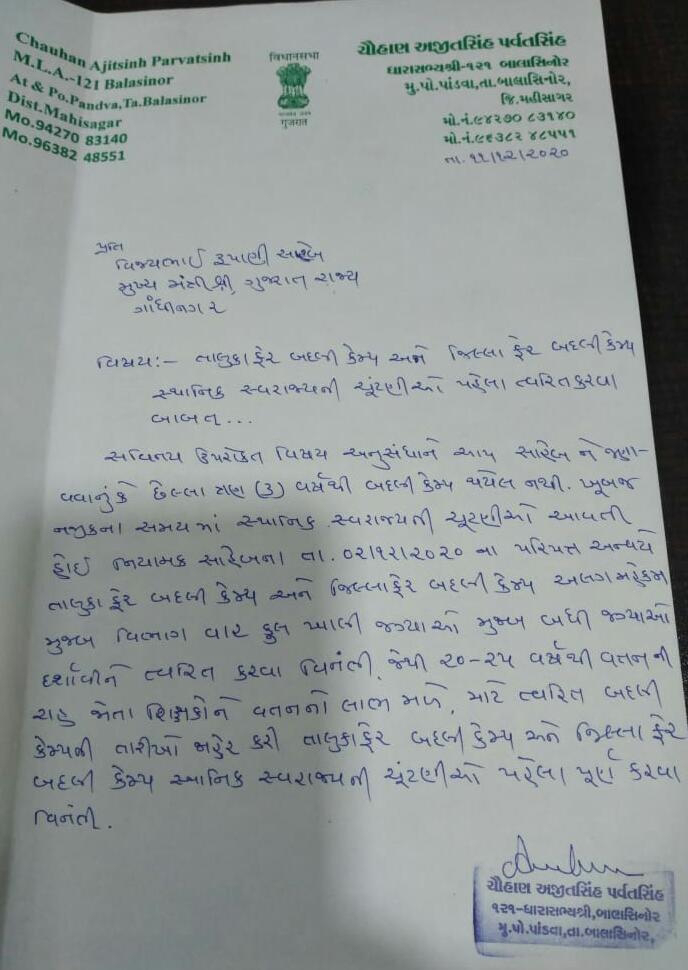 Chauhan Ajitsinh Parvatsinh
M.L.A.-121 Balasinor
At & Po.Pandva,Ta.Balasinor
Dist.Mahisagar
Mo.94270 83140
Mo.96382 48551
વિધાનસભા
ગુજરાત
ચૌહાણ અજીતસિંહ પર્વતસિંહ
ધારાસભ્યશ્રી-૧૨૧ બાલાસિનોર
મુ.પો.પાંડવા,તા.બાલાસિનોર,
જિ.મહીસાગર
મો.નં.૯૪૨૭૦ ૮૩૧૪૦
મો.નં.૯૬૩૮૨ ૪૮૫૫૧
તા. ૧૧/૧૨/૨૦૨૦
પ્રતિ
વિજયભાઈ રૂપાણી સાહેબ
મુખ્ય મંત્રીશ્રી, ગુજરાત રાજ્ય
ગાંધીનગર
વિષય:- તાલુકા ફેર બદલી કેમ્પ અને જિલ્લા ફેર બદલી કેમ્પ
સ્થાનિક સ્વરાજ્યની ચૂંટણીઓ પહેલા ત્વરિત કરવા
બાબત...
સવિનય ઉપરોક્ત વિષય અનુસંધાને આપ સાહેબ ને જણા-
વવાનું કે છેલ્લા ત્રણ (૩) વર્ષથી બદલી કેમ્પ થયેલ નથી. ખૂબજ
નજીકના સમય માં સ્થાનિક સ્વરાજ્યની ચૂંટણીઓ આવતી
હોઈ નિયામક સાહેબના તા. ૦૨/૧૨/૨૦૨૦ ના પરિપત્ર અન્વયે
તાલુકા ફેર બદલી કેમ્પ અને જિલ્લાફેર બદલી કેમ્પ અલગ મહેકમ
મુજબ વિભાગ વાર કુલ ખાલી જગ્યાઓ મુજબ બધી જગ્યાઓ
દર્શાવીને ત્વરિત કરવા વિનંતી. જેથી ૨૦-૨૫ વર્ષથી વતન ની
રાહ જોતા શિક્ષકોને વતનનો લાભ મળે. માટે ત્વરિત બદલી
કેમ્પની તારીખો જાહેર કરી તાલુકાફેર બદલી કેમ્પ અને જિલ્લા ફેર
બદલી કેમ્પ સ્થાનિક સ્વરાજ્યની ચૂંટણીઓ પહેલા પૂર્ણ કરવા
વિનંતી.
ચૌહાણ અજીતસિંહ પર્વતસિંહ
૧૨૧-ધારાસભ્યશ્રી,બાલાસિનોર
મુ.પો.પાંડવા,તા.બાલાસિનોર,